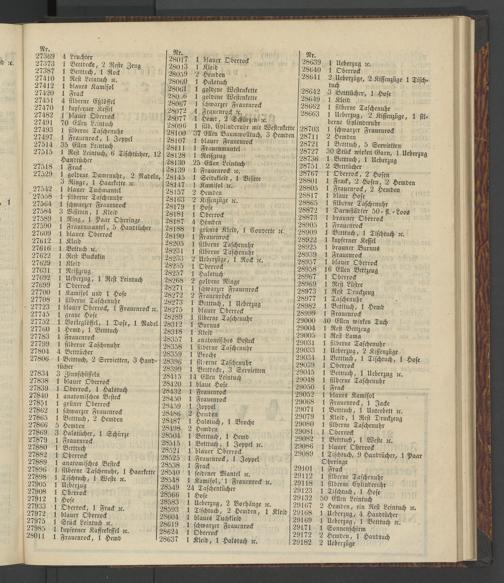 Nr.
27369 4 Leuchter
27373 1 Bettdecke, 2 Reste Zeug
27387 1 Betttuch, 1 Rock
27410 1 Rest Leintuch ꝛc.
27412 1 blaues Kamisol
27420 1 Frack
27451 4 silberne Eßlöffel
27470 1 kupferner Kessel
27482 1 blauer Oberrock
27491 70 Ellen Leintuch
27493 1 silberne Taschenuhr
27497 1 Frauenrock, 1 Zeppel
27514 35 Ellen Leintuch
27515 1 Rest Leintuch, 6 Tischtücher, 12
Handtücher
27518 1 Frack
27529 1 goldene Damenuhr, 2 Nadeln,
3 Ringe, 1 Haarkette ꝛc.
27542 1 blauer Tuchmantel
27558 1 silberne Taschenuhr
27564 1 schwarzer Frauenrock
27584 3 Bissten, 1 Kleid
27589 1 Ring, 1 Paar Ohrringe
27590 1 Frauenmantel, 5 Handtücher
27609 1 blauer Oberrock
27612 1 Kleid
27616 1 Betttuch ꝛc.
27622 1 Rest Buckskin
27629 1 Kleid
27631 1 Reißzeug
27692 1 Ueberzug, 1 Rest Leintuch
27699 1 Oberrock
27700 1 Kamisol und 1 Hose
27708 1 silberne Taschenuhr
27723 1 blauer Oberrock, 1 Frauenrock ꝛc.
27745 1 graue Hose
27752 1 Vorleglöffel, 1 Dose, 1 Nadel
27760 1 Hemd, 1 Betttuch
27783 1 Frauenrock
27799 1 silberne Taschenuhr
27804 4 Betttücher
27806 1 Betttuch, 2 Servietten, 3 Hand-
tücher
27834 3 Zinnschüsseln
27838 1 blauer Oberrock
27839 1 Oberrock, 1 Halstuch
27840 1 anatomisches Besteck
27851 1 grüner Oberrock
27862 1 schwarzer Frauenrock
27865 1 Betttuch, 2 Hemden
27866 5 Hemden
27869 3 Halstücher, 1 Schürze
27879 1 Frauenrock
27880 1 Betttuch
27882 1 Oberrock
27889 1 anatomisches Besteck
27896 1 silberne Taschenuhr, 1 Haarkette
27898 1 Tischtuch, 1 Weste ꝛc.
27905 1 Ueberzug
27908 1 Oberrock
27912 1 Hose
27933 1 Oberrock, 1 Frack ꝛc.
27972 1 blauer Oberrock
27975 1 Stück Leintuch ꝛc.
27985 4 kupferner Kaffeekessel ꝛc.
28011 1 Frauenrock, 1 Hemd
Nr.
28017 1 blauer Oberrock
28013 1 Kleid
28059 2 Hemden
28060 1 Halstuch
28061 1 goldene Westenkette
1 goldene Westenkette
28067 1 schwarzer Frauenrock
28072 4 Frauenrock ꝛc.
28077 1 Hose, 2 Schürzen ꝛc.
28096 1 silb. Cylinderuhr mit Westenkette
28100 37 Ellen Baumwolltuch, 3 Hemden
28107 1 blauer Frauenrock
28111 1 Frauenmantel
28128 1 Reißzeug
28130 25 Ellen Leintuch
28139 1 Frauenrock ꝛc.
28145 1 Seidelfaß, 1 Bissten
28147 1 Kamisol ꝛc.
28157 2 Hemden
28163 2 Reißzeuge ꝛc.
28179 1 Hose
28181 1 Oberrock
28187 4 Hemden
28188 1 grünes Kleid, 1 Couverte ꝛc.
28190 1 Frauenrock
28205 1 silberne Taschenuhr
28231 1 silberne Taschenuhr
28233 2 Ueberzüge, 1 Rock ꝛc.
28255 1 Oberrock
28257 1 Halstuch
28268 2 goldene Ringe
28271 1 schwarzer Frauenrock
28272 2 Frauenröcke
28273 1 Betttuch, 1 Ueberzug
28275 1 blauer Oberrock
28289 1 silberne Taschenuhr
28312 1 Burnus
28318 1 Kleid
28357 1 anatomisches Besteck
28358 1 silberne Taschenuhr
28359 1 Broche
28396 1 silberne Taschenuhr
28399 1 Bettdecke, 3 Servietten
28415 41 Ellen Leintuch
28420 1 blaue Hose
28432 1 Frauenrock
28450 1 Frauenrock
28459 1 Zeppel
28486 2 Hemden
28487 1 Halstuch, 1 Broche
28498 2 Hemden
28504 1 Betttuch, 1 Hemd
28515 1 Betttuch, 1 Zeppel ꝛc.
28521 1 blauer Oberrock
28525 1 Frauenrock, 1 Zeppel
28538 1 Frack
28540 1 seidener Mantel ꝛc.
28548 1 Kamisol, 1 Frauenrock ꝛc.
28549 24 Taschentücher
28566 1 Hose
28583 1 Ueberzug, 2 Vorhänge ꝛc.
28593 1 Tischtuch, 2 Hemden, 1 Kleid
28604 1 blaues Tuchkleid
28619 1 schwarzer Frauenrock
28624 1 Oberrock
28637 1 Kleid, 1 Halstuch ꝛc.
Nr.
28639 1 Ueberzug ꝛc.
28640 1 Oberrock
28641 2 Ueberzüge, 2 Kissenzüge 1 Tisch-
tuch
28642 3 Betttücher, 1 Hose
28649 1 Kleid
28662 1 silberne Taschenuhr
28663 1 Ueberzug, 2 Kissenzüge, 1 sil-
berne Cylinderuhr
28703 1 schwarzer Frauenrock
28711 2 Hemden
28721 1 Betttuch, 5 Servietten
28727 30 Stück wirken Garn, 1 Ueberzug
28736 1 Betttuch, 1 Ueberzug
28751 2 Betttücher
28767 1 Oberrock, 2 Hosen
28801 1 Frack, 2 Hosen, 2 Hemden
28805 1 Frauenrock, 2 Hemden
28837 1 blaue Hose
28865 1 silberne Taschenuhr
28872 1 Darmstädter 50-fl.-Loos
28873 1 brauner Oberrock
28905 1 Frauenrock
28909 1 Betttuch, 1 Tischtuch ꝛc.
28922 1 kupferner Kessel
28925 1 brauner Burnus
28939 1 Frauenrock
28957 1 blauer Oberrock
28958 16 Ellen Bettzeug
28967 1 Oberrock
28969 1 Rest Lüster
28973 1 Rest Druckzeug
28977 1 Taschenuhr
28982 1 Betttuch, 1 Hemd
28989 1 Frauenrock
29000 40 Ellen wirken Tuch
29004 1 Rest Bettzeug
29005 1 Rest Lama
29031 1 silberne Taschenuhr
29033 1 Ueberzug, 2 Kissenzüge
29034 1 Betttuch, 1 Tischtuch, 1 Hose
29039 1 Oberrock
29045 1 Betttuch, 1 Ueberzug ꝛc.
29048 1 silberne Taschenuhr
29050 1 Frack
29052 1 blaues Kamisol
29068 1 Frauenrock, 1 Jacke
29071 1 Betttuch, 1 Unterbett ꝛc.
29079 1 Kleid, 1 Rest Druckzeug
29080 1 silberne Taschenuhr
29081 1 Oberrock
29082 1 Betttuch, 1 Weste ꝛc.
29086 1 blauer Oberrock
29089 1 Tischtuch, 9 Handtücher, 1 Paar
Ohrringe
29101 1 Frack
29112 1 silberne Taschenuhr
29118 1 silberne Cylinderuhr
29123 1 Tischtuch, 1 Hose
29132 50 Ellen Leintuch
29167 2 Hemden, ein Rest Leintuch ꝛc.
29168 1 Ueberzug, 4 Handtücher
29169 1 Ueberzug, 1 Betttuch ꝛc.
29171 1 Sonnenschirm
29172 2 Hemden, 1 Handtuch
29182 2 Ueberzüge